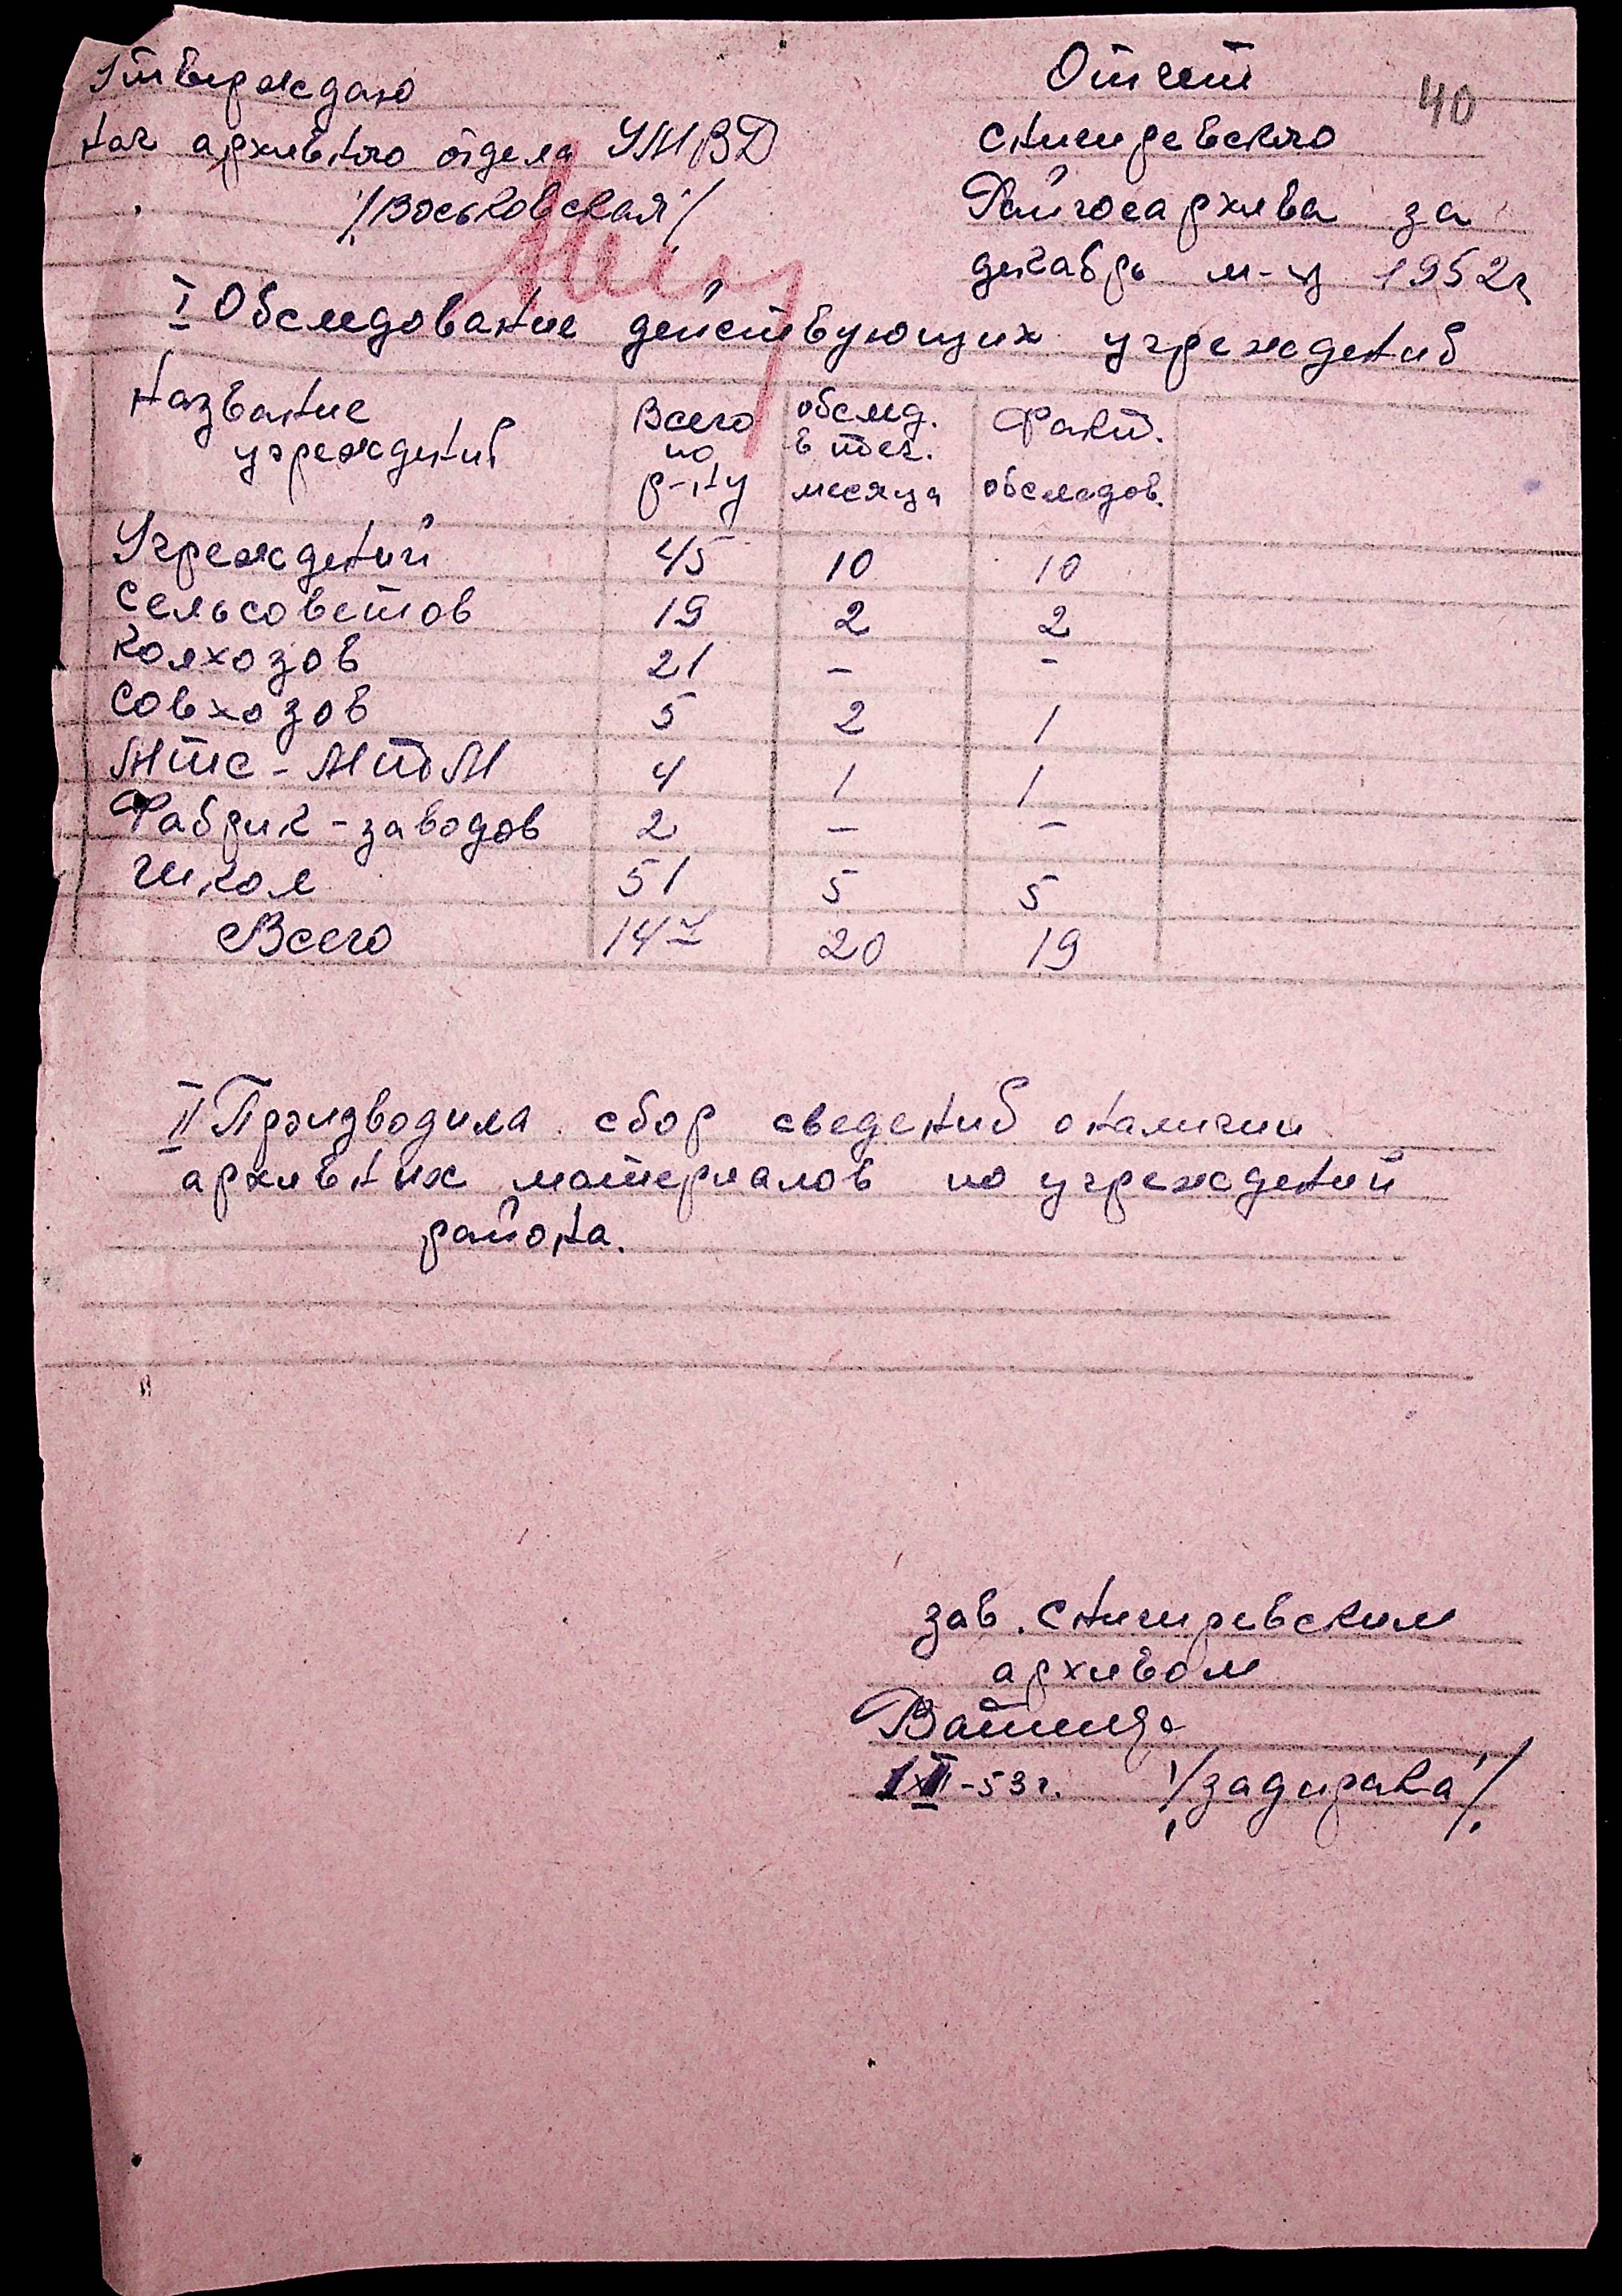 Утверждаю
нач архивного отдела УМВД
/Воськовская/
Отчет
40
снигиревского
Райгосархива за
декабрь м-ц 1952г
I Обследование действующих учреждений
Название учреждений | Всего по р-ну | обслед. в теч. месяца | Факт. обследов.
Учреждений 45 10 10
Сельсоветов 19 2 2
Колхозов 21 – –
Совхозов 5 2 1
Мтс - МтбМ 4 1 1
Фабрик - заводов 2 – –
Школ 51 5 5
Всего 147 20 19
II Производила сбор сведений оналичии
архивных материалов по учреждений
района.
зав. снигиревским
архивом
-53г. /задирака/